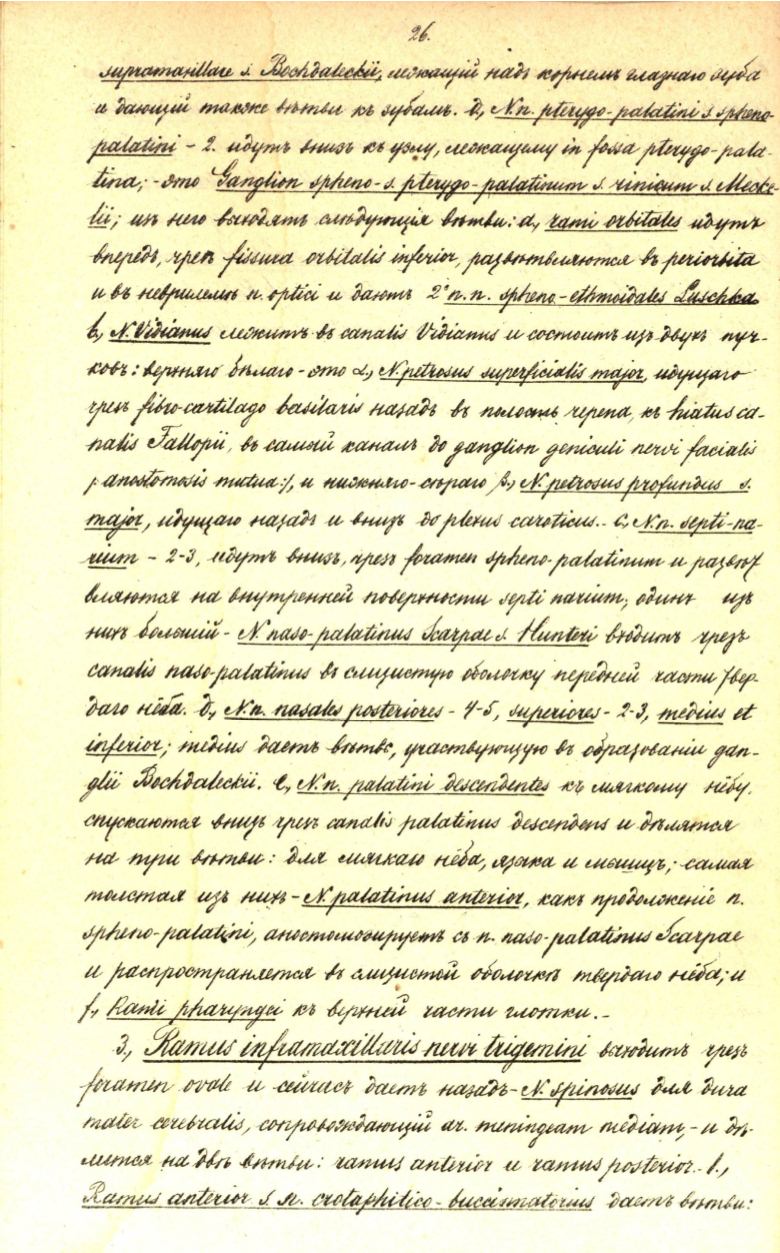 26.
supramaxillare s. Bochdaleckii, лежащій надъ корнемъ глазнаго зуба
и дающій также вѣтви къ зубамъ. d, N.n. pterygo-palatini s. spheno-
palatini - 2. идутъ внизъ къ узлу, лежащему in fossa pterygo-pala-
tina; - это Ganglion spheno- s. pterygo-palatinum s. rinicum s. Mecke-
lii; изъ него выходятъ слѣдующія вѣтви: a, rami orbitales идутъ
впередъ, чрезъ fissura orbitalis inferior, развѣтвляются въ periorbita
и въ неврилемѣ n. optici и даютъ 2 n.n. spheno-ethmoidales Luschka
b, N. Vidianus лежитъ въ canalis Vidianus и состоитъ изъ двухъ пуч-
ковъ: верхняго бѣлаго - это α, N. petrosus superficialis major, идущаго
чрезъ fibro-cartilago basilaris назадъ въ полость черепа, къ hiatus ca-
nalis Fallopii, въ самый каналъ до ganglion geniculi nervi facialis
/: anostomosis mutua :/, и нижняго-сѣраго β, N. petrosus profundus s.
major, идущаго назадъ и внизъ до plexus caroticus. - c, N.n. septi-na-
rium - 2-3, идутъ внизъ, чрезъ foramen spheno-palatinum и развѣт
вляются на внутренней поверхности septi narium; одинъ изъ
нихъ большій - N. naso-palatinus Scarpae s. Hunteri входитъ чрезъ
canalis naso-palatinus въ слизистую оболочку передней части твер-
даго нёба. d, N.n. nasales posteriores - 4-5, superiores - 2-3, medius et
inferior; medius даетъ вѣтвь, участвующую въ образованіи gan-
glii Bochdaleckii. e, N.n. palatini descendentes къ мягкому нёбу,
спускаются внизъ чрезъ canalis palatinus descendens и дѣлятся
на три вѣтви: для мягкаго нёба, язычка и мышцъ; самая
толстая изъ нихъ - N. palatinus anterior, какъ продолженіе n.
spheno-palatini, аностомозируетъ съ n. naso-palatinus Scarpae
и распространяется въ слизистой оболочкѣ твердаго нёба; и
f, Rami pharyngei къ верхней части глотки. -
3, Ramus inframaxillaris nervi trigemini выходитъ чрезъ
foramen ovale и сейчасъ даетъ назадъ - N. spinosus для dura
mater cerebralis, сопровождающій ar. meningeam mediam, - и дѣ-
лится на двѣ вѣтви: ramus anterior и ramus posterior. - 1.,
Ramus anterior s. n. crotaphitico-buccinatorius даетъ вѣтви: